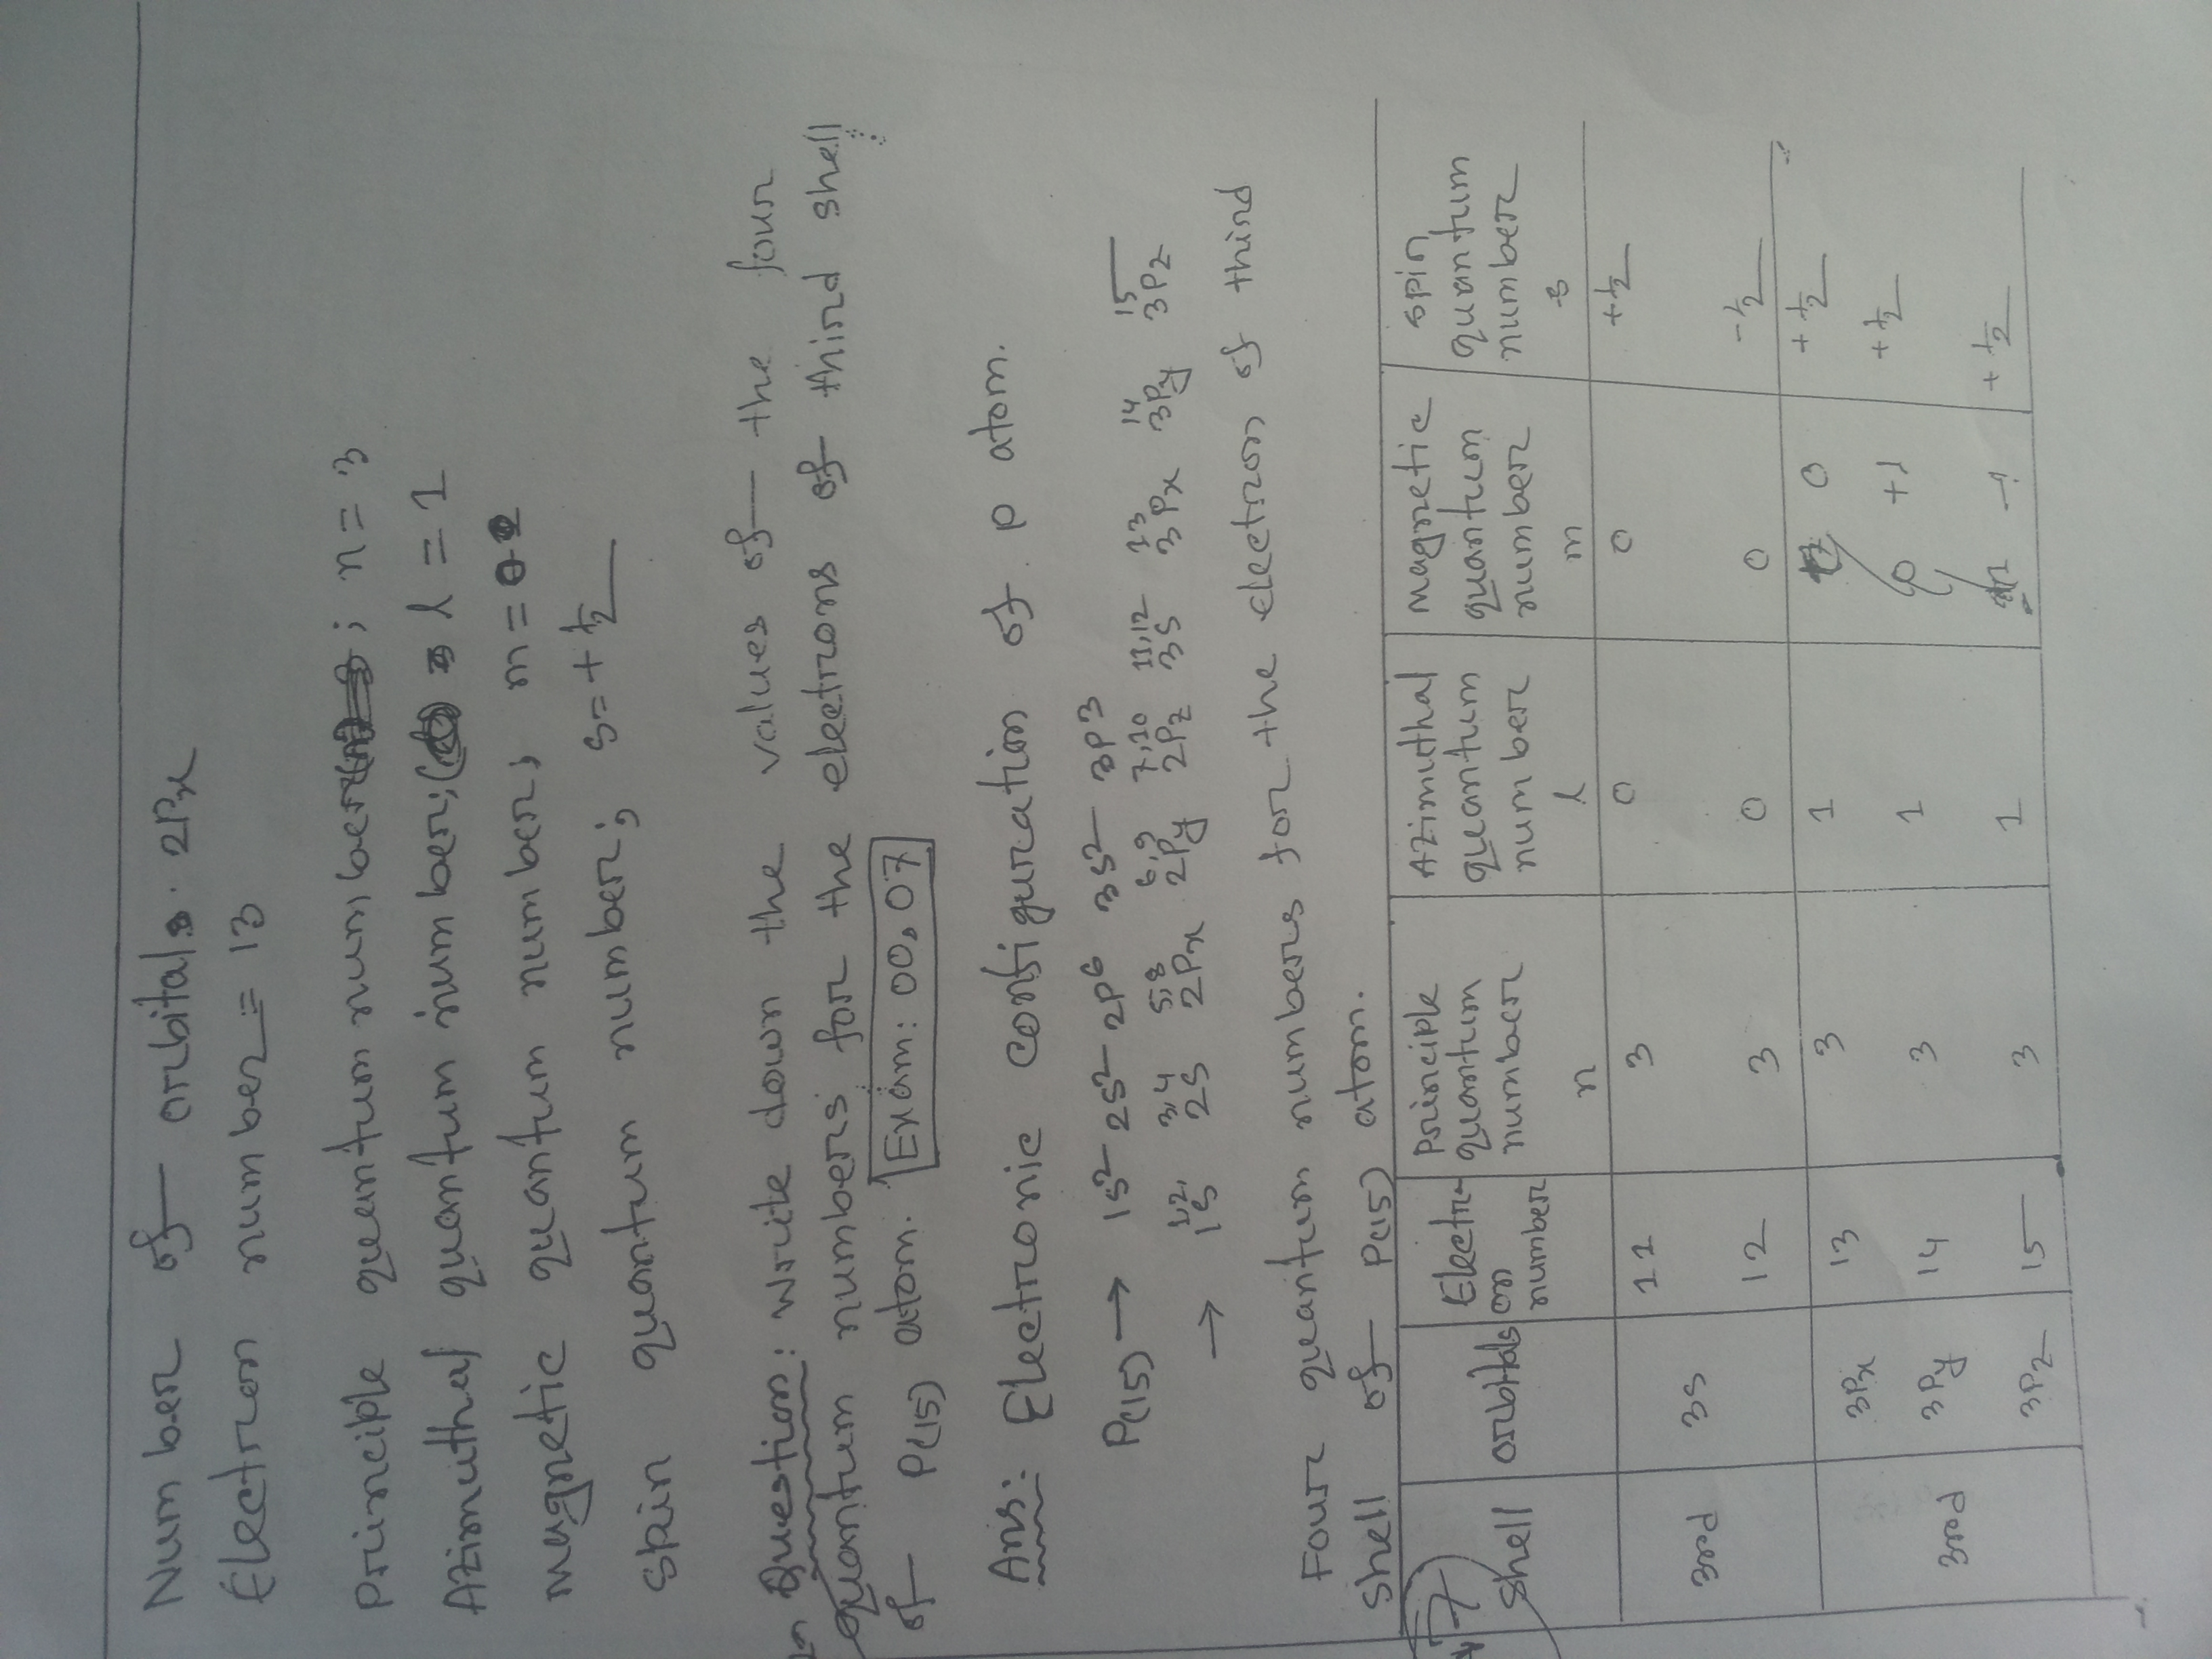 Number of orbitals. 2Px
Electron number = 13
Principle quantum number ; n = 3
Azimuthal quantum number; l = 1
magnetic quantum number; m = 0
Spin quantum number; s = + 1/2
Question: Write down the values of the four
quantum numbers for the electrons of third shell
of P(15) atom. Exam: 00, 07
Ans: Electronic configuration of p atom.
P(15) → 1s² 2s² 2p⁶ 3s² 3p³
1,2, 3,4 5,8 6,9 7,10 11,12 13 14 15
→ 1s 2s 2Px 2Py 2Pz 3s 3Px 3Py 3Pz
Four quantum numbers for the electron of third
shell of P(15) atom.
7
Shell orbitals Electron number Principle quantum number n Azimuthal quantum number l magnetic quantum number m spin quantum number s
3rd 3s 11 3 0 0 +1/2
12 3 0 0 -1/2
3rd 3Px 13 3 1 0 +1/2
3Py 14 3 1 0 +1 +1/2
3Pz 15 3 1 -1 +1/2